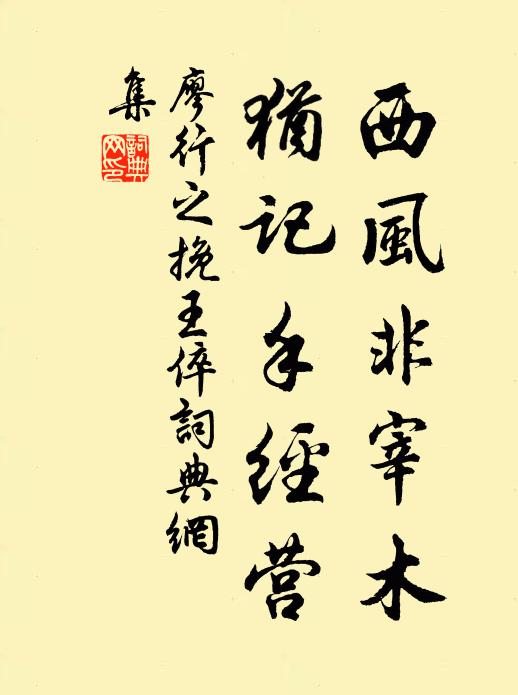 西風非宰木
猶记手經营
廖行之挽王倅詞典網
集
詞典網印